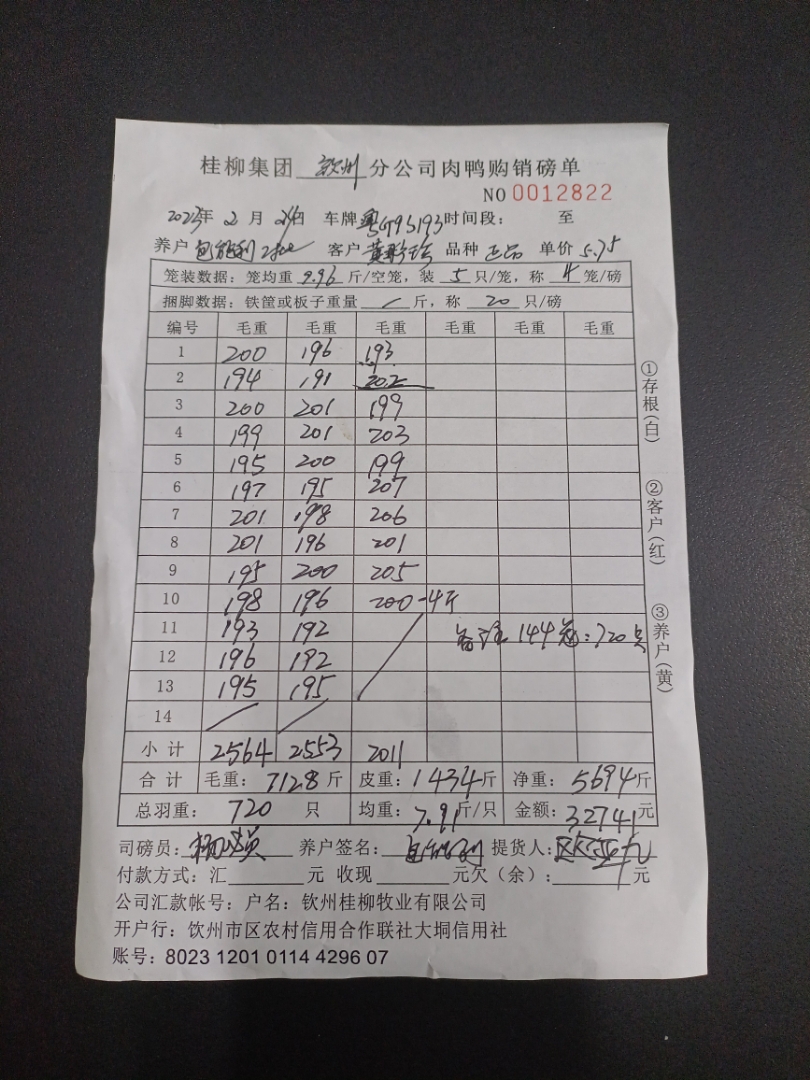 桂柳集团 钦州 分公司肉鸭购销磅单
NO 0012822
2023年 2 月 24日 车牌 粤G95193 时间段： 至
养户 客户 品种 正品 单价 5.75
笼装数据：笼均重 9.96 斤/空笼，装 5 只/笼，称 4 笼/磅
捆脚数据：铁筐或板子重量 / 斤，称 20 只/磅
编号 毛重 毛重 毛重 毛重 毛重 毛重
1 200 196 193
2 194 191 202
3 200 201 199
4 199 201 203
5 195 200 199
6 197 195 207
7 201 198 206
8 201 196 201
9 195 200 205
10 198 196 200-4斤
11 193 192
备注 144笼：720只
12 196 192
13 195 195
14
小计 2564 2553 2011
合计 毛重：7128斤 皮重：1434斤 净重：5694斤
总羽重： 720 只 均重：7.91斤/只 金额：32741元
司磅员： 养户签名： 提货人：
付款方式：汇 元 收现 元欠（余）： 元
公司汇款帐号：户名：钦州桂柳牧业有限公司
开户行：钦州市区农村信用合作联社大垌信用社
账号：8023 1201 0114 4296 07
①存根（白）
②客户（红）
③养户（黄）